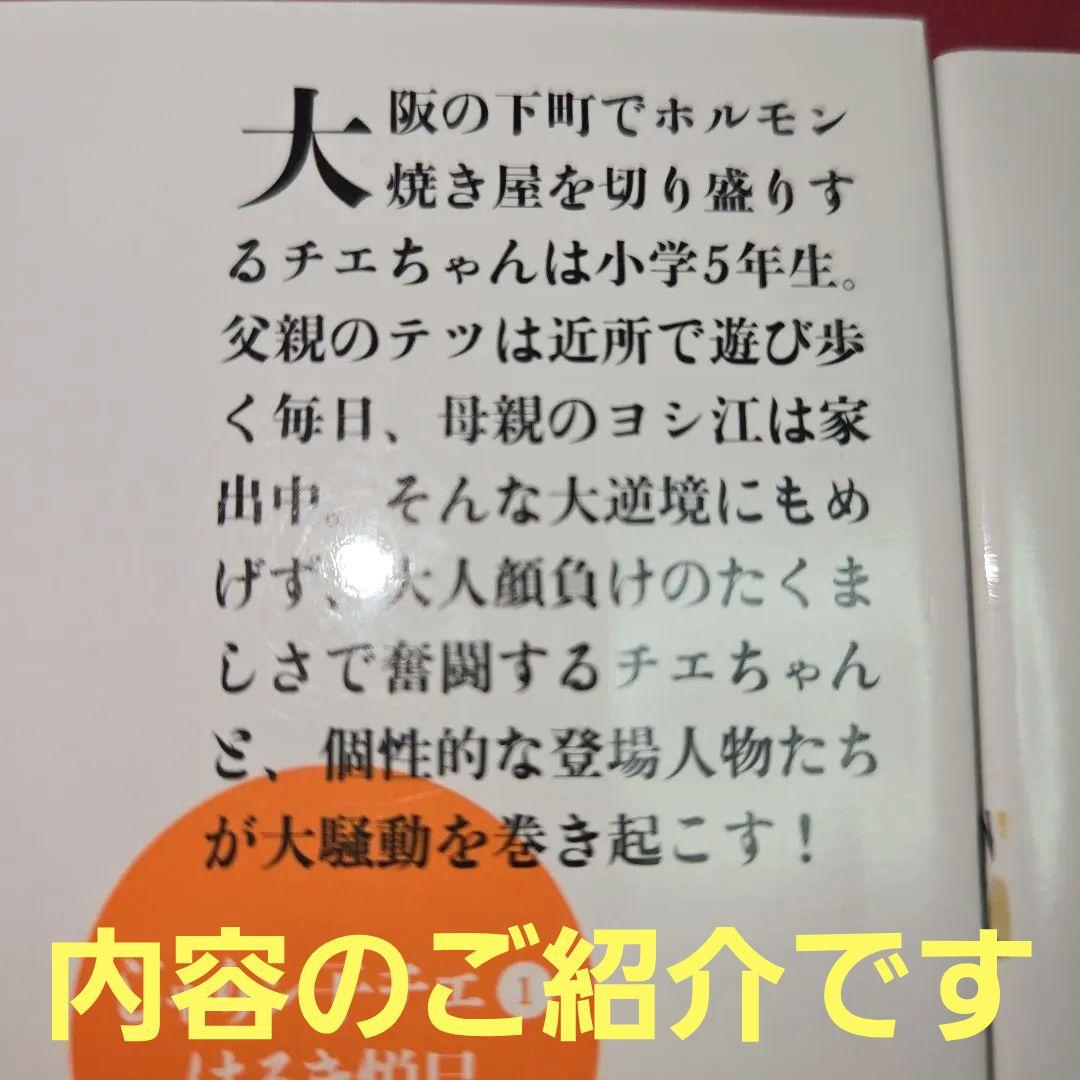 大阪の下町でホルモン
焼き屋を切り盛りす
るチエちゃんは小学5年生。
父親のテツは近所で遊び歩
く毎日、母親のヨシ江は家
出中。そんな大逆境にもめ
げず、大人顔負けのたくま
しさで奮闘するチエちゃん
と、個性的な登場人物たち
が大騒動を巻き起こす！
チエ1
内容のご紹介です
はるき悦巳